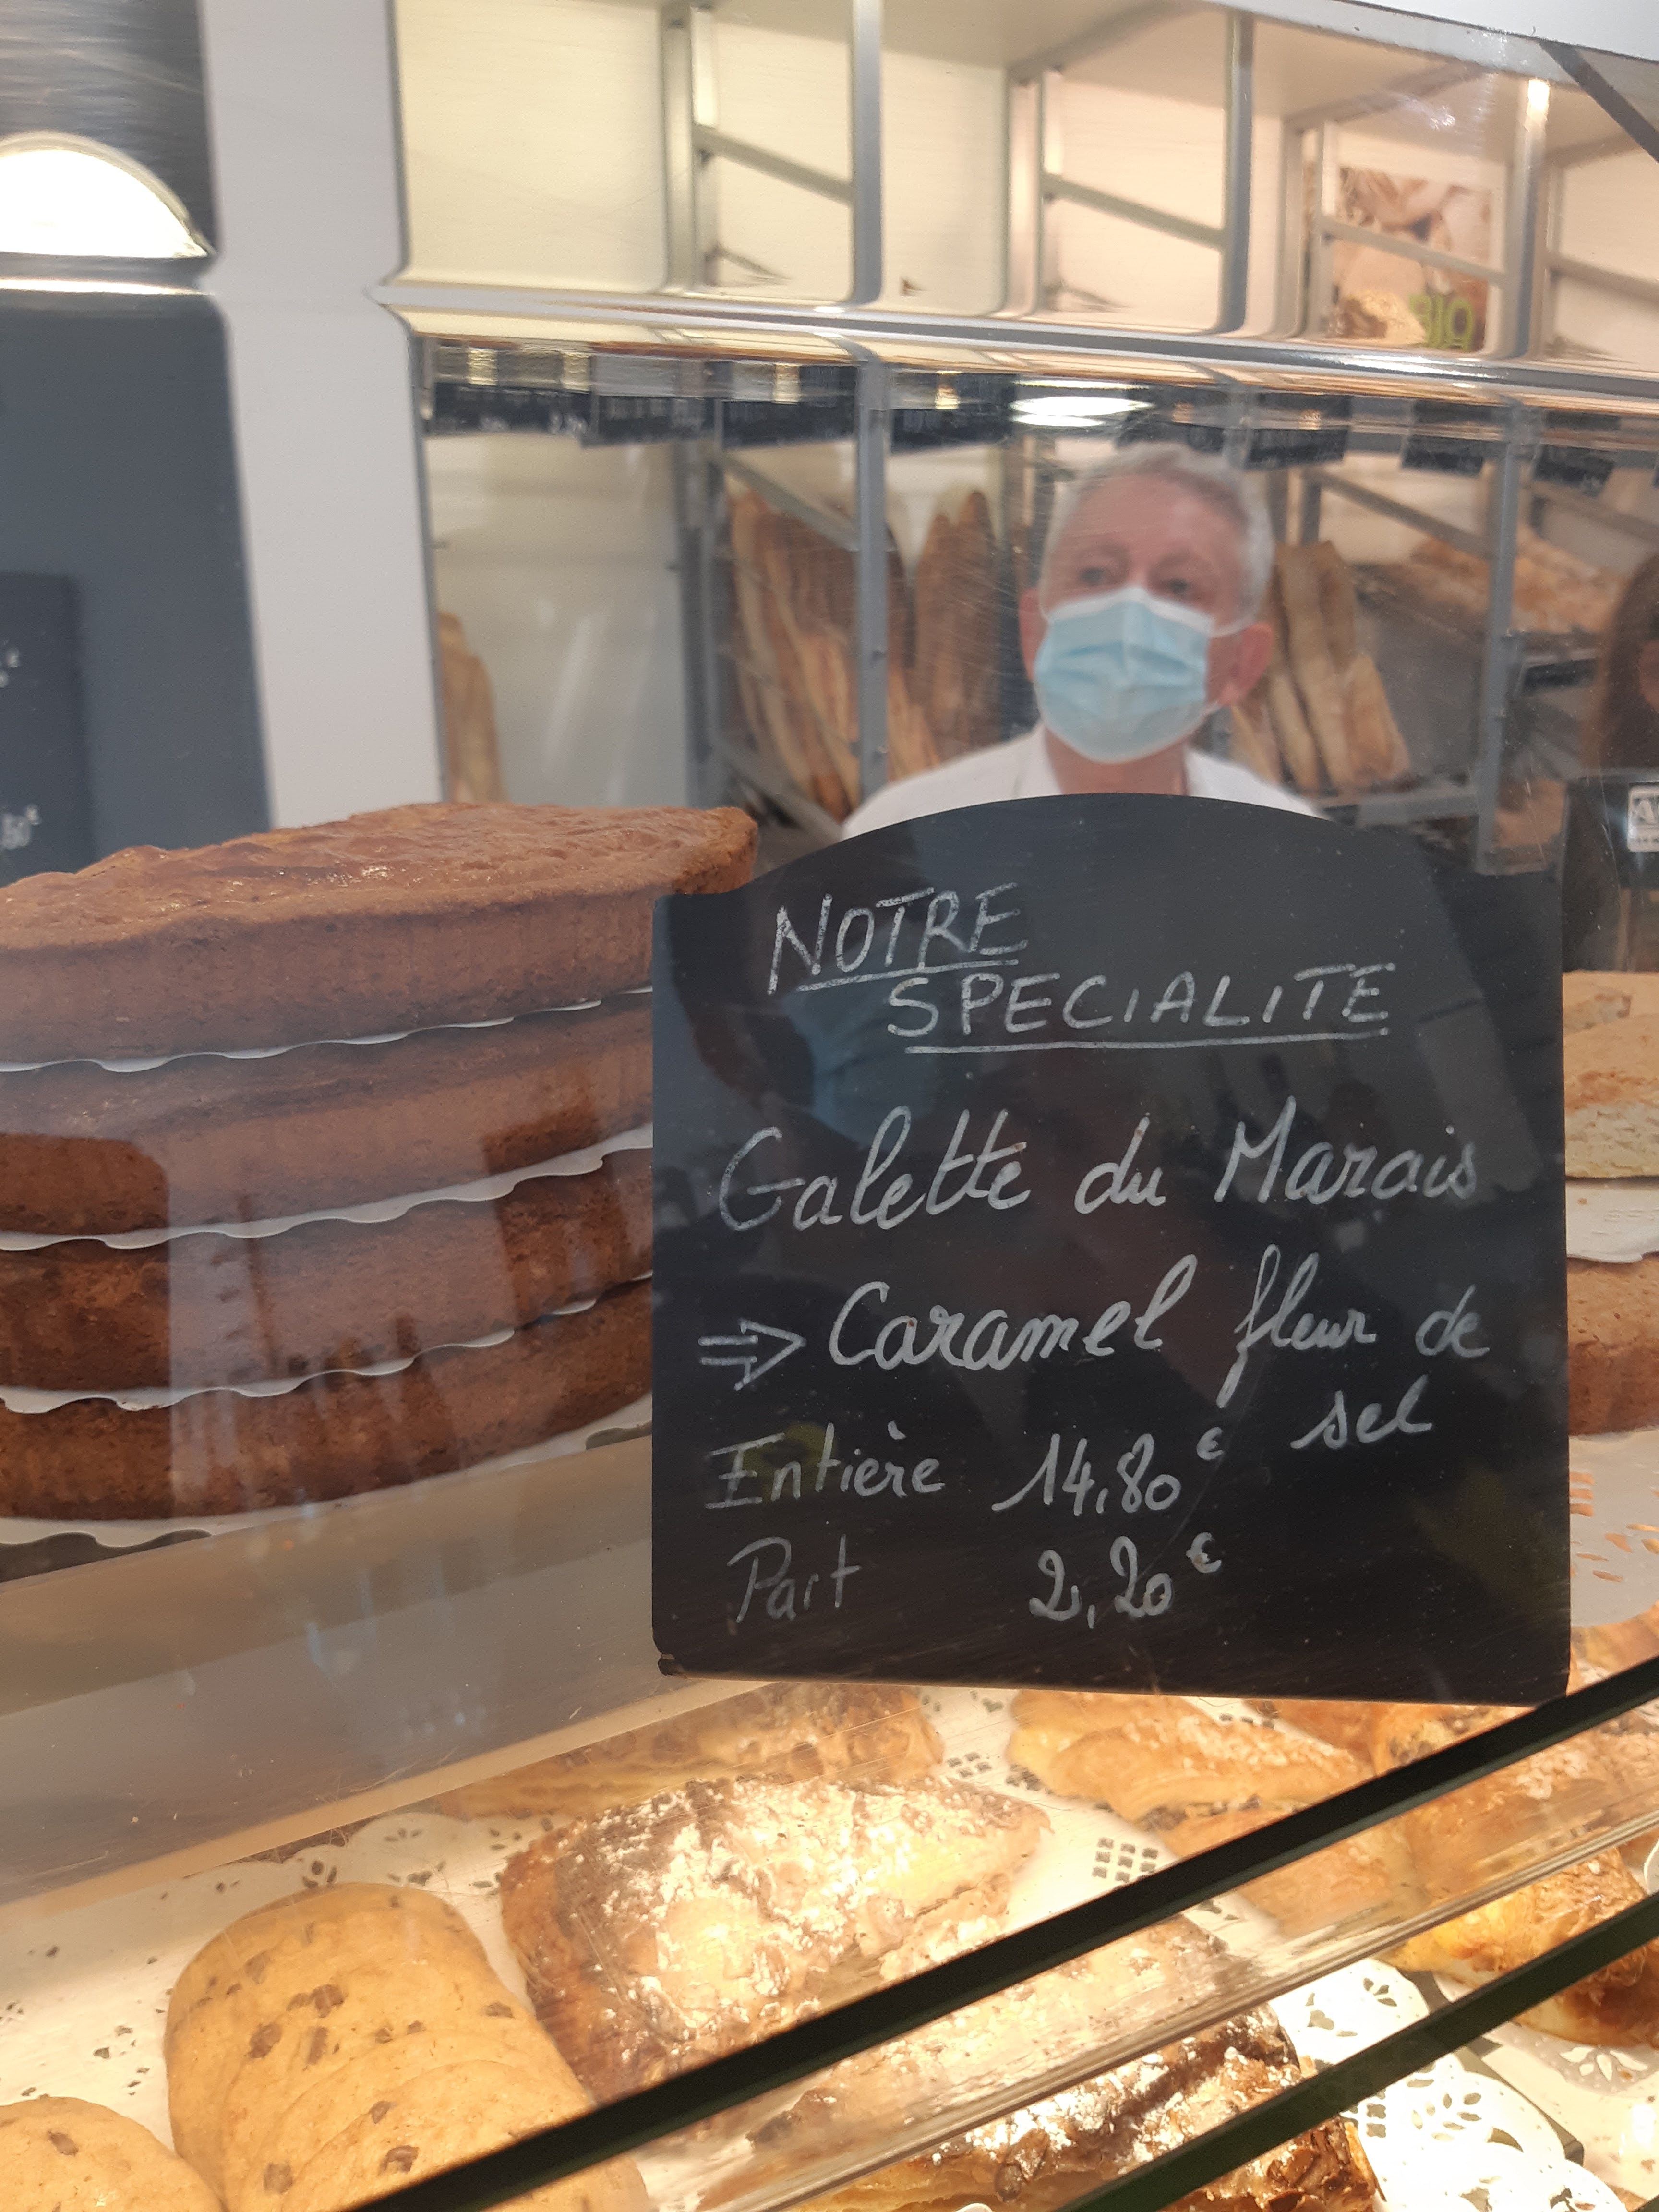 BIO
NOTRE
SPECIALITE
Galette du Marais
⇒ Caramel fleur de
sel
Entière 14,80€
Part 2,20€